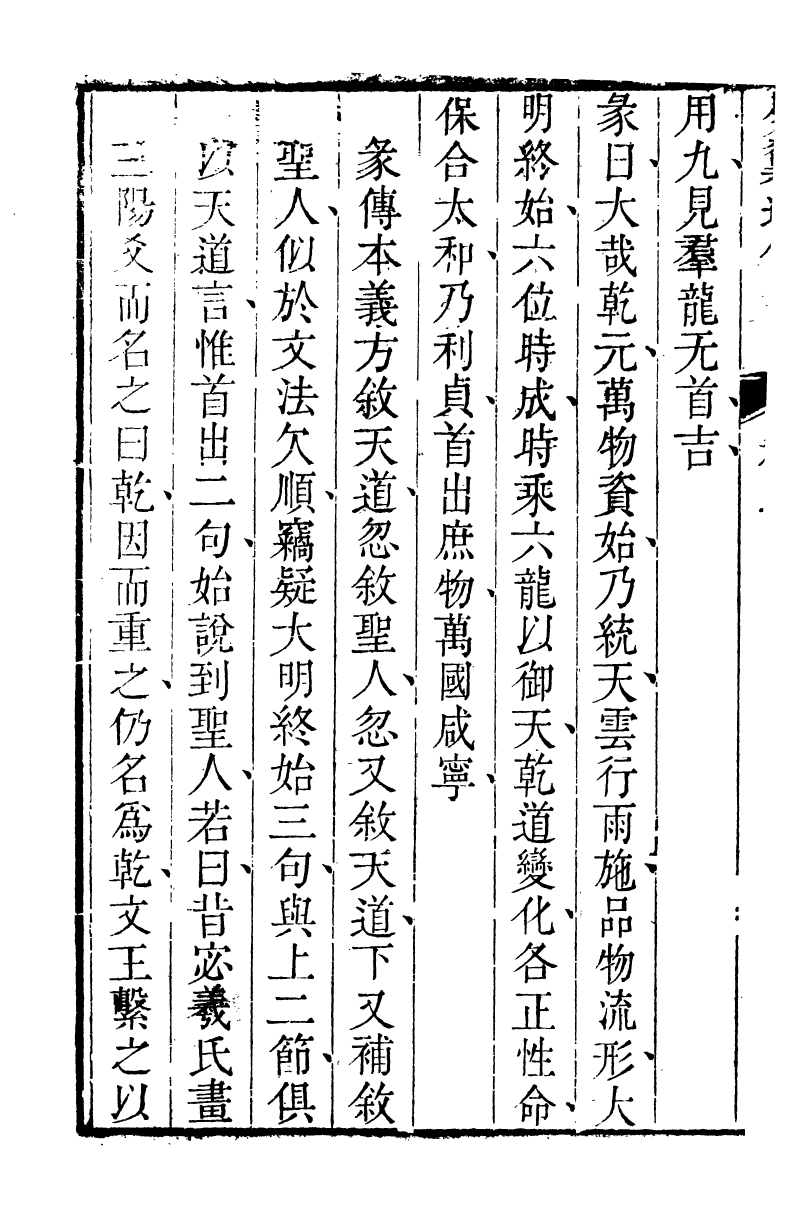 用九、見羣龍无首、吉、
彖曰、大哉乾元、萬物資始、乃統天、雲行雨施、品物流形、大
明終始、六位時成、時乘六龍以御天、乾道變化、各正性命、
保合太和、乃利貞、首出庶物、萬國咸寧、
彖傳本義方敘天道、忽敘聖人、忽又敘天道、下又補敘
聖人、似於文法欠順、竊疑大明終始三句、與上二節、俱
以天道言、惟首出二句、始說到聖人、若曰、昔宓羲氏畫
三陽爻而名之曰乾、因而重之、仍名爲乾、文王繫之以